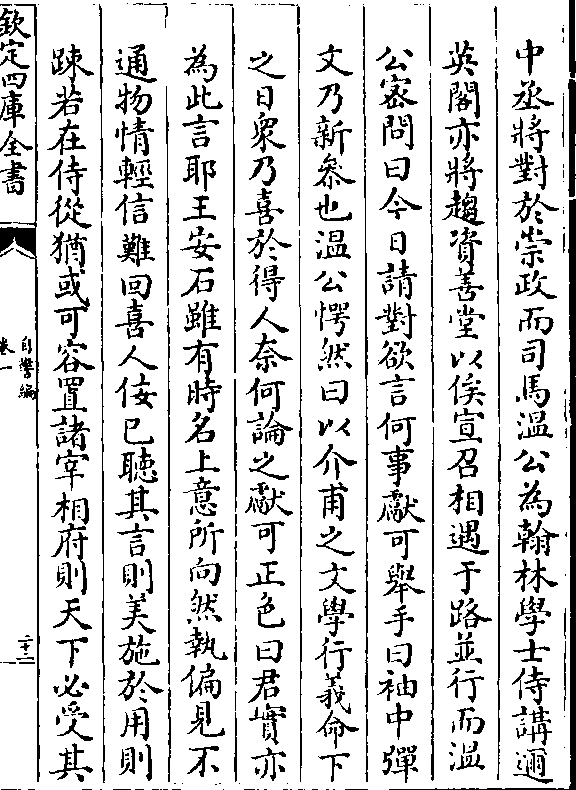 中丞將對於崇政而司馬溫公為翰林學士侍講邇
英閣亦將趨資善堂以俟宣召相遇于路並行而溫
公宻問曰今日請對欲言何事獻可舉手曰袖中彈
文乃新叅也溫公愕然曰以介甫之文學行義命下
之日衆乃喜於得人奈何論之獻可正色曰君實亦
為此言耶王安石雖有時名上意所向然執偏見不
通物情輕信難回喜人佞已聽其言則美施於用則
踈若在侍從猶或可容置諸宰相府則天下必受其
欽定四庫全書
自警編
卷一
二十二